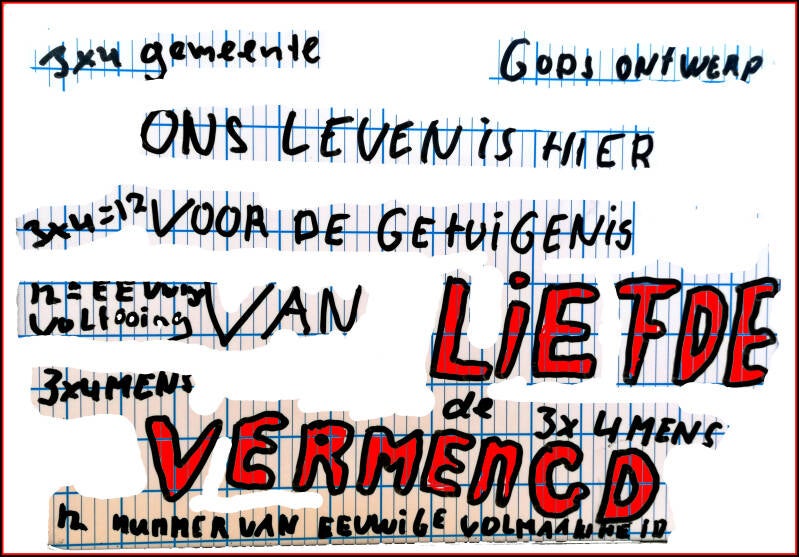 3x4 gemeente GODS ONTWERP
ONS LEVEN iS HIER
3x4=12 VOOR DE GETUiGENiS
12 = EEUWIG
VOLTOOING VAN LiEFDE
3x4 MENS de 3x 4 MENS
VERMENGD
12 NUMMER VAN EEUWIGE VOLMAAKTHEID